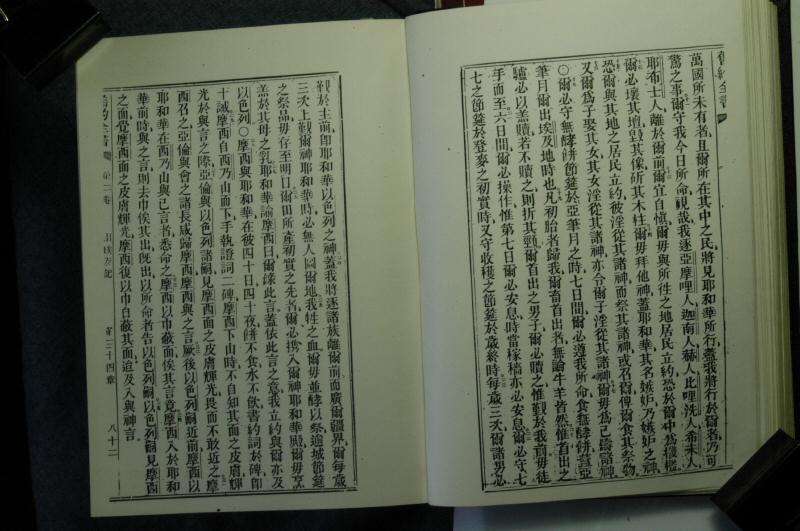 舊約全書
萬國所未有者且爾所在其中之民將見耶和華所行蓋我將行於爾者乃可
驚之事爾守我今日所命視哉我逐亞摩哩人迦南人赫人比哩洗人希未人
耶布士人離於爾前爾宜自愼爾毋與所徃之地居民立約恐於爾中爲機檻
爾必壞其壇毀其像斫其木柱爾毋拜他神蓋耶和華其名嫉妒乃嫉妒之神
恐爾與其地之居民立約彼淫從其諸神而祭其諸神或召爾俾爾食其祭物
又爾爲子娶其女其女淫從其諸神亦令爾子淫從其諸神爾毋爲己鑄諸神
○爾必守無酵餅節筵於亞筆月之時七日間爾必遵我所命食無酵餅蓋亞
筆月爾出埃及地時也凡初胎者歸我爾畜首出者無論牛羊皆然惟首出之
驢必以羔贖若不贖之則折其頸爾首出之男子爾必贖之惟覲於我前毋徒
手而至六日間爾必操作惟第七日爾必安息時當稼穡亦必安息爾守七
七之節筵於登麥之初實時又守收穫之節筵於歲終時每歲三次爾諸男必
覲於主前卽耶和華以色列之神蓋我將逐諸族離爾前而廣爾疆界爾每歲
三次上覲爾神耶和華時必無人圖爾地我牲之血爾毋並酵以祭逾城節筵
之祭品毋存至明日爾田所產初實之先者爾必攜入爾神耶和華殿爾毋烹
羔於其母之乳耶和華諭摩西曰爾錄此言蓋依此言之意我立約與爾亦及
以色列○摩西與耶和華在彼四十日四十夜餅不食水不飲書約詞於碑卽
十誡摩西自西乃山而下手執證詞二碑摩西下山時不自知其面之皮膚輝
光於與言之際亞倫與以色列諸嗣見摩西面之皮膚輝光畏而不敢近之摩
西召之亞倫與會之諸長咸歸摩西摩西與之言厥後以色列嗣近前摩西以
耶和華在西乃山與己言者悉命之摩西以巾蔽面俟其言竟摩西入於耶和
華前時與之言則去巾俟其出旣出以所命者告以色列嗣以色列嗣見摩西
之面覺摩西面之皮膚輝光摩西復以巾自蔽其面迨及入與神言
舊約全書 第二卷 出埃及記 第三十四章 八十二